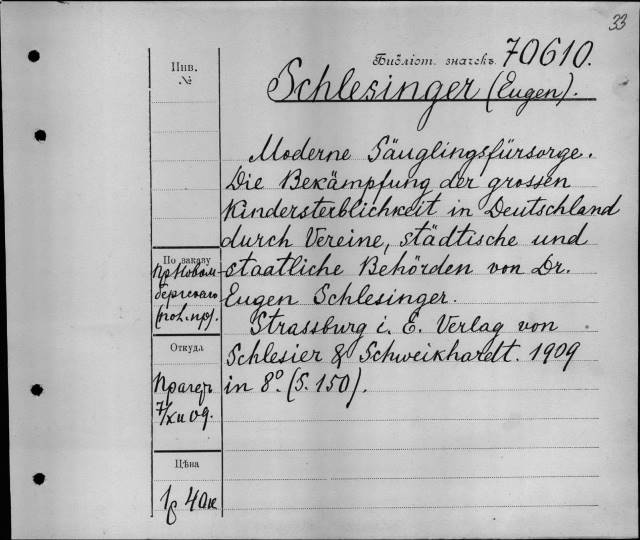 33
Библіот. значекъ 70610.
Schlesinger (Eugen).
Инв.
№
Moderne Säuglingsfürsorge.
Die Bekämpfung der grossen
Kindersterblichkeit in Deutschland
durch Vereine, städtische und
staatliche Behörden von Dr.
Eugen Schlesinger.
Strassburg i. E. Verlag von
Schlesier & Schweikhardt. 1909
in 8º. (S. 150).
По заказу
Откуда
Прагеръ
7/XII 09.
Цѣна
1р 40к